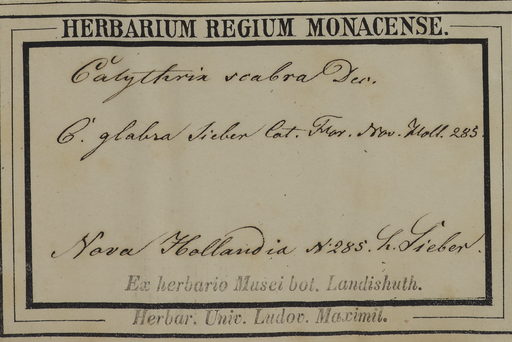 HERBARIUM REGIUM MONACENSE.
Calythrix scabra Dec.
C. glabra Sieber Cat. Flor. Nov. Holl. 285.
Nova Hollandia N. 285. h. Sieber.
Ex herbario Musei bot. Landishuth.
Herbar. Univ. Ludov. Maximil.